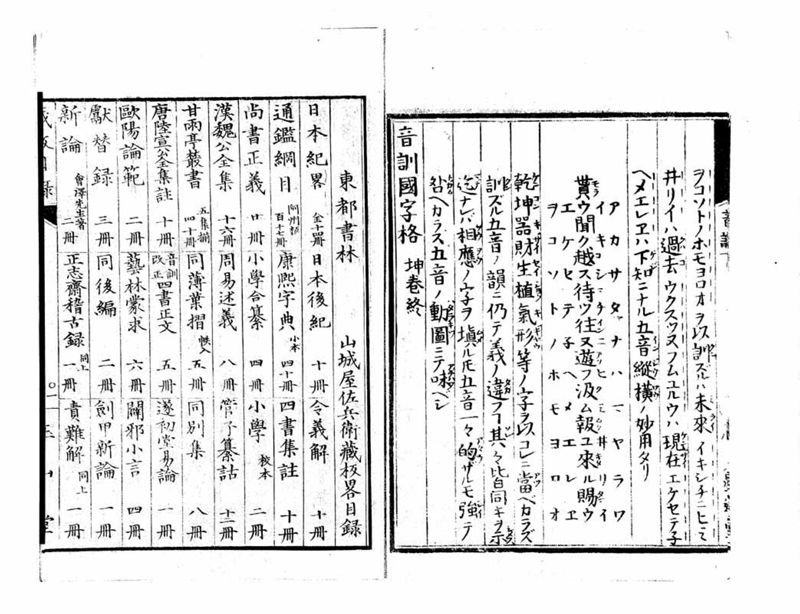 ヲコソトノホモヨロオヲ以訓ズルハ未來イキシチニヒミ
井リイハ過去ウクスツヌフムユルウハ現在エケセテ子
ヘメエレヱハ下知ニナル五音縱横ノ妙用タリ
アカサタナハマヤラワ
イキシチニヒミ井リイ
貫ウ聞ク越ス待ツ往又遊フ汲ム報ユ來ル賜ウ
エケセテ子ヘメエレヱ
ヲコソトノホモヨロオ
乾坤器財生植氣形等ノ字ヲ以コレニ當ベカラズ
訓ズル五音ノ韻ニ仍テ義ノ違フ其々皆同キヲ示
迄ナレバ相應ノ字ヲ塡ルモ五音一々的ザルモ強テ
咎ベカラス五音ノ動圖ミテ味ベシ
音訓國字格 坤巻終
東都書林 山城屋佐兵衛藏板畧目録
日本紀畧 全十四冊 日本後紀 十冊 令義解 十冊
通鑑綱目 百十七冊 康熙字典 小本 四十冊 四書集註 十冊
尚書正義 廿冊 小學合纂 四冊 小學 校本 二冊
漢魏公全集 十六冊 周易述義 八冊 管子纂詁 十二冊
甘雨亭叢書 五集揃 四十冊 同薄葉摺 帙入 五冊 同別集 八冊
唐陸宣公全集註 十冊 音訓改正四書正文 五冊 遂初堂易論 一冊
歐陽論範 二冊 藝林蒙求 六冊 闢邪小言 四冊
獻替録 三冊 同後編 二冊 劍甲新論 一冊
新論 會澤先生著 二冊 正志齋稽古録 同上 一冊 責難解 同上 一冊